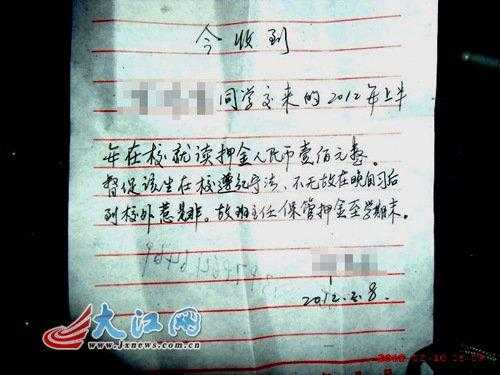 今收到
同学交来的2012年上半
年在校就读押金人民币壹佰元整。
督促该生在校遵纪守法，不无故在晚自习后
到校外惹是非。故班主任保管押金至学期末。
2012.2.8.
大江网
www.jxnews.com.cn